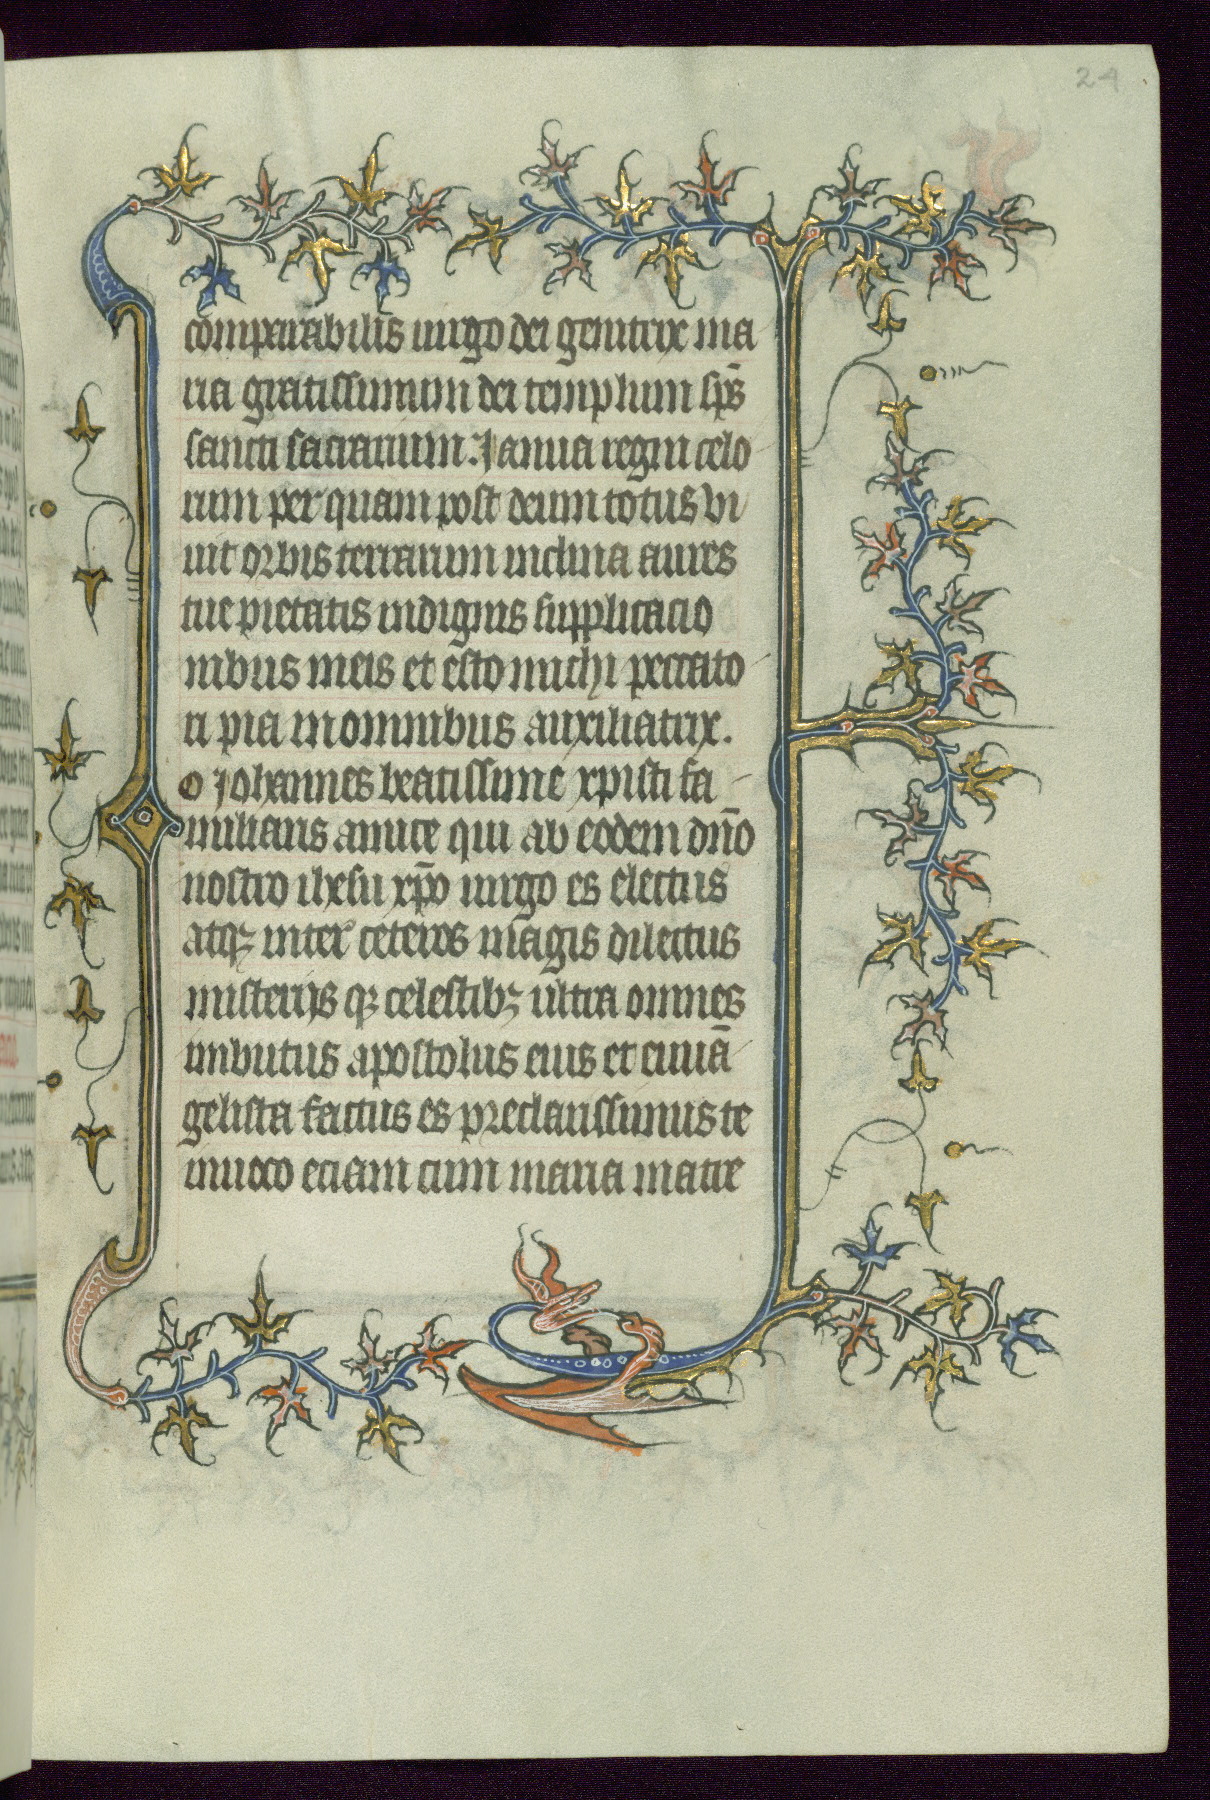 24
comparabilis uirgo dei genitrix ma
ria gratissimum dei templum sp̄s
sancti sacrarium. Ianua regni celo
rum per quam post deum totus vi
uit orbis terrarum inclina aures
tue pietatis indignis supplicacio
nibus meis et esto michi peccato
ri pia in omnibus auxiliatrix.
O Iohannes beatissime xpisti fa
miliaris amice qui ab eodem dño
nostro ihesu xp̄o uirgo es electus
atqꝫ inter ceteros magis dilectus
misterijs qꝫ celestibꝫ ultra omnes
imbutus apostolus eius et euuā
gelista factus es preclarissimus te
inuoco eciam cum maria matre